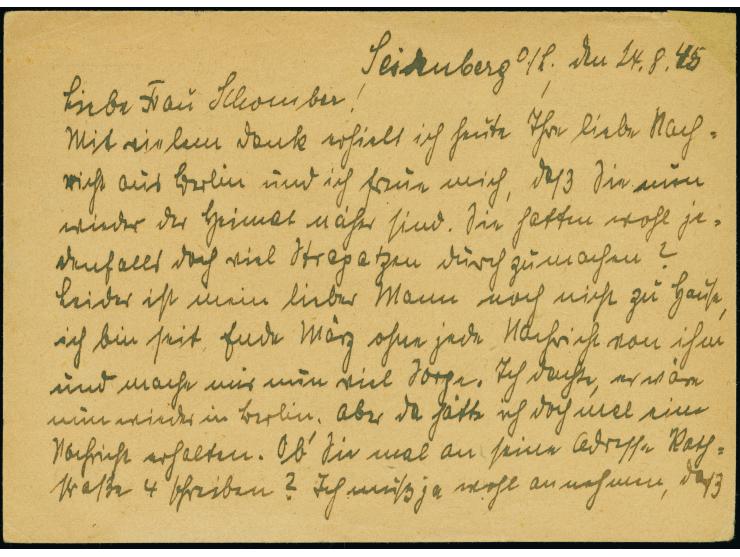 Seidenberg O/L, den 24.8.45
Liebe Frau Schomber!
Mit vielem Dank erhielt ich heute Ihre liebe Nach-
richt aus Berlin und ich freue mich, daß Sie nun
wieder der Heimat näher sind. Sie hatten wohl je-
denfalls doch viel Strapatzen durchzumachen?
Leider ist mein lieber Mann noch nicht zu Hause,
ich bin seit Ende März ohne jede Nachricht von ihm
und mache mir nun viel Sorge. Ich dachte, er wäre
nun wieder in Berlin. Aber da hätte ich doch mal eine
Nachricht erhalten. Ob Sie mal an seine Adresse
straße 4 schreiben? Ich muß ja wohl annehmen, daß